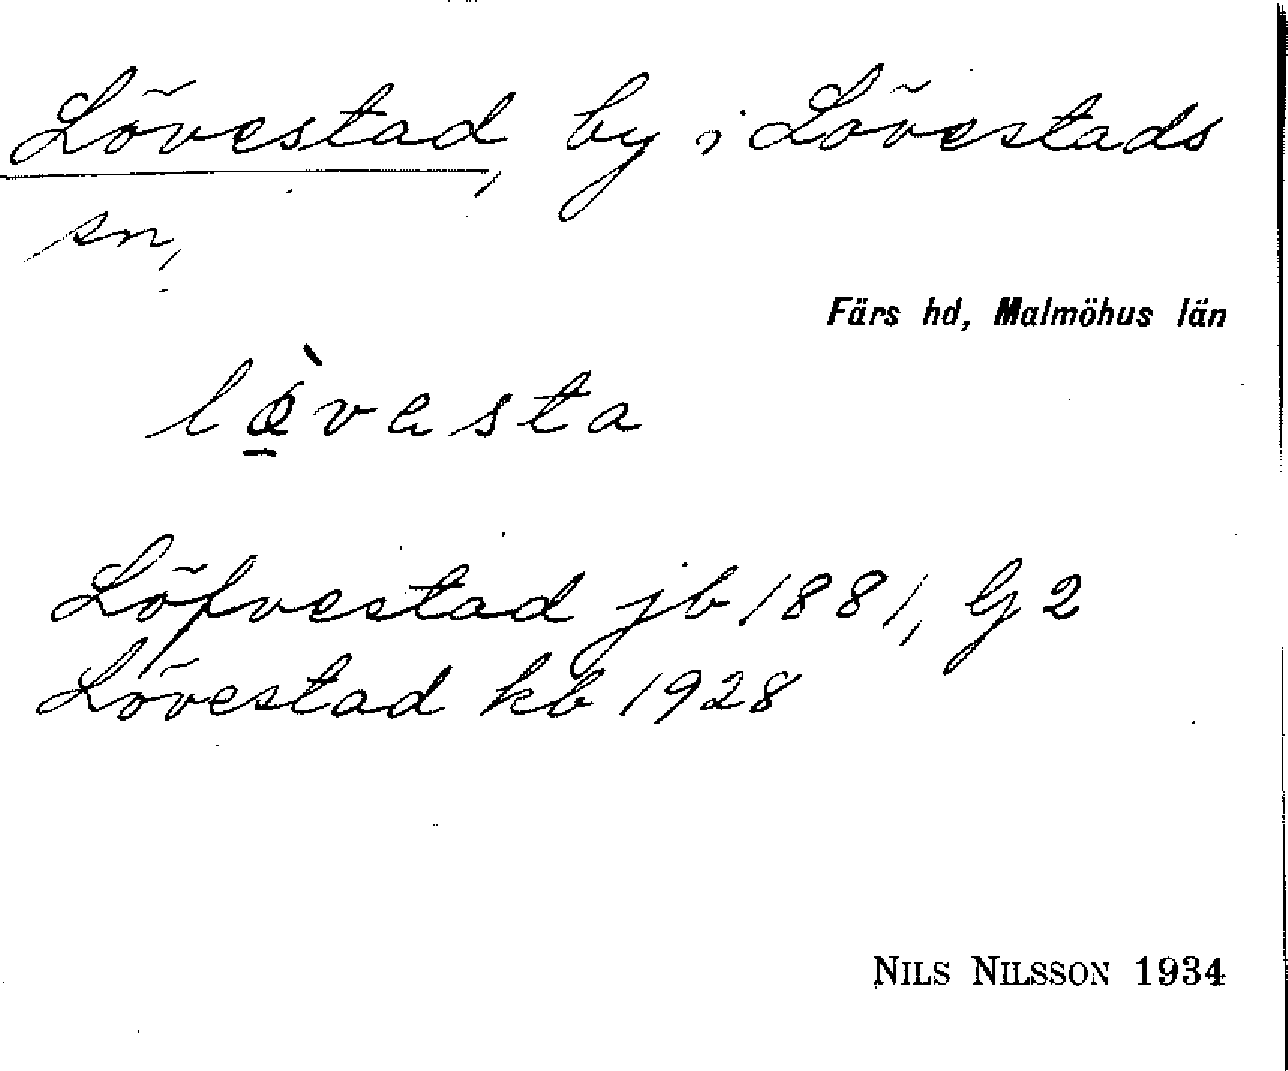 Lövestad, by i Lövestads
sn,
Färs hd, Malmöhus län
Löfvestad jb 1881, G 2
Lövestad kb 1928
NILS NILSSON 1934